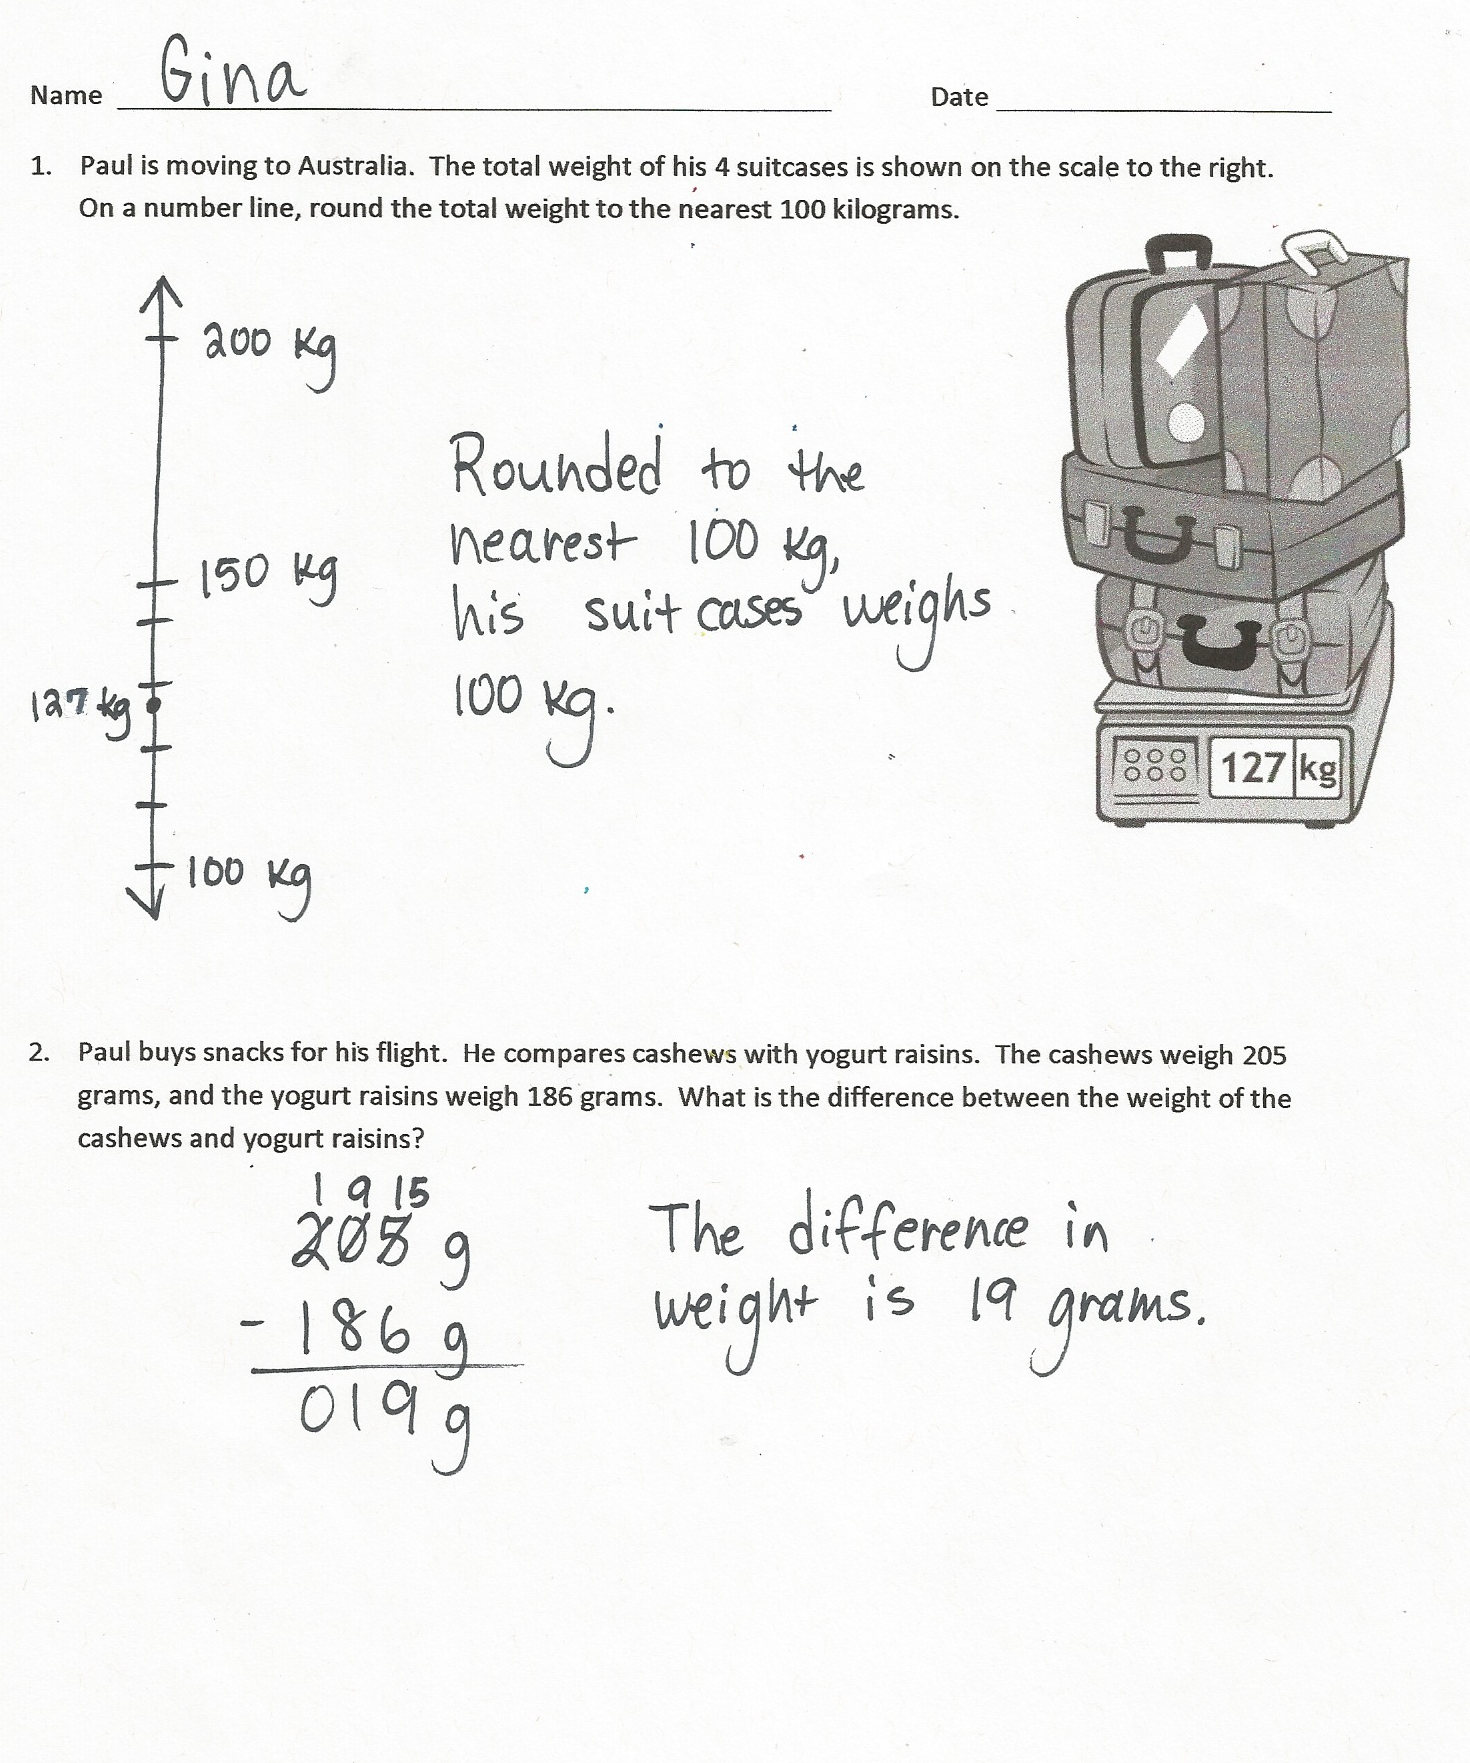 Name Gina Date
1. Paul is moving to Australia. The total weight of his 4 suitcases is shown on the scale to the right.
On a number line, round the total weight to the nearest 100 kilograms.
200 kg
150 kg
127 kg
100 kg
Rounded to the
nearest 100 kg,
his suitcases weighs
100 kg.
127 kg
2. Paul buys snacks for his flight. He compares cashews with yogurt raisins. The cashews weigh 205
grams, and the yogurt raisins weigh 186 grams. What is the difference between the weight of the
cashews and yogurt raisins?
1 9 15
205 g
- 186 g
019 g
The difference in
weight is 19 grams.